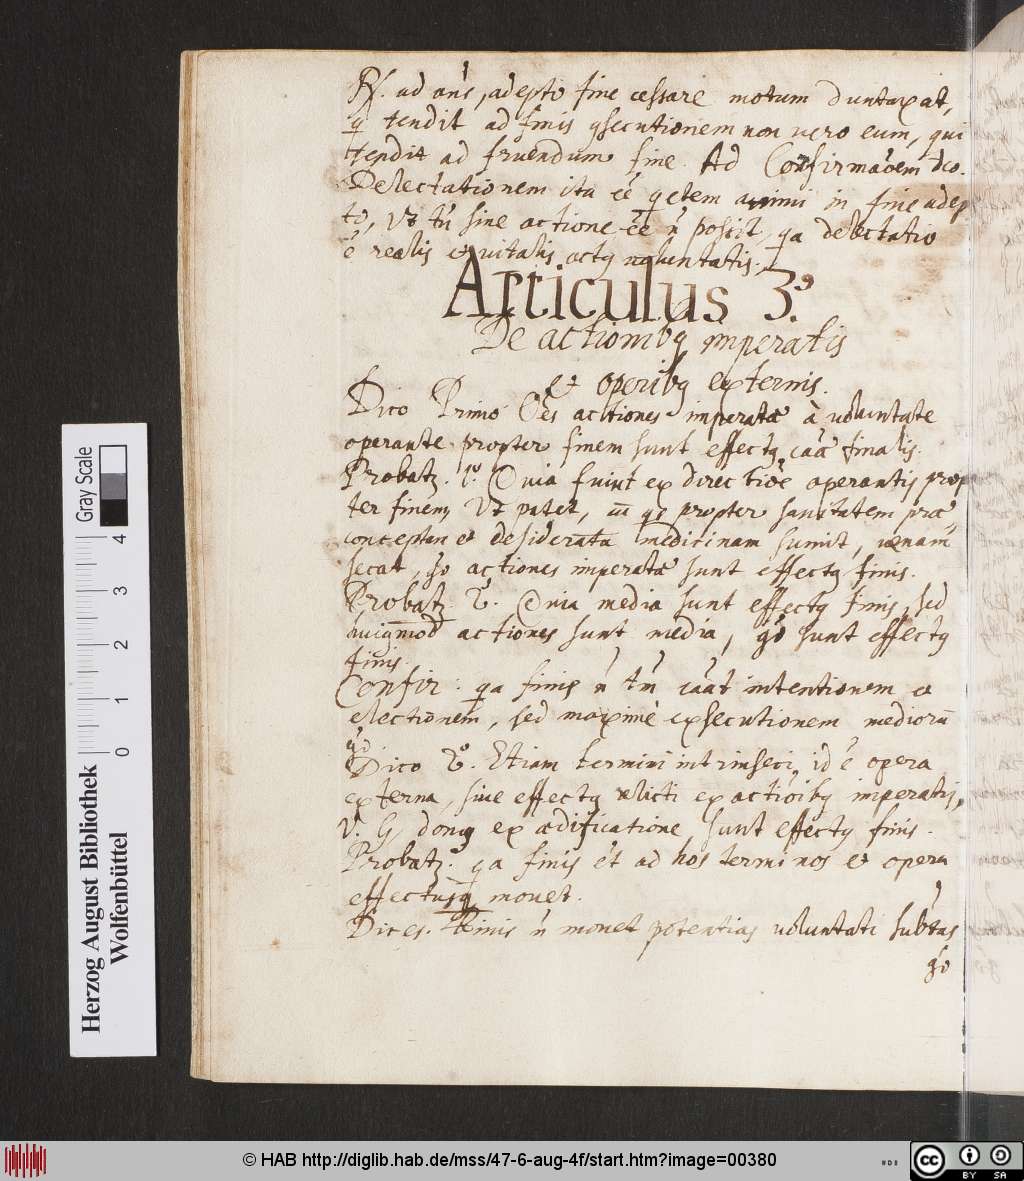 R. ad ans, adepto fine cessare motum duntaxat,
q tendit ad finis qsecutionem non vero eum, qui
tendit ad fruendum fine. Ad Confirmaoem dco.
Delectationem ita ee qetem animi in fine adep
to, Vt tn sine actione ee n possit, qa delectatio
e realis et vitalis actq voluntatis.
Articulus 3.9
De actionibq imperatis
et operibq externis.
Dico Primo Oes actiones imperatæ à voluntate
operante propter finem sunt effectq caæ finalis.
Probatz. 1º. Quia fiunt ex directioe operantis prop
ter finem, Vt patet, in qo propter sanitatem præ
conceptam et desideratam medicinam sumit, venam
secat, go actiones imperatæ sunt effectq finis.
Probatz 2. Quia media sunt effectq finis, sed
huiusmod actiones sunt media, go sunt effectq
finis.
Confir: qa finis n tm caat intentionem et
electionem, sed maxime exsecutionem mediorū
go
Dico 2º. Etiam termini intrinseci, id e opera
externa, sive effectq relicti ex actioibq imperatis,
V. G. domq ex ædificatione, sunt effectq finis.
Probatz. qa finis et ad hos terminos et opera
effectusq movet.
Dices. Finis n movet potentias voluntati subtas
go
Gray Scale
0 1 2 3 4
Herzog August Bibliothek
Wolfenbüttel
© HAB http://diglib.hab.de/mss/47-6-aug-4f/start.htm?image=00380
cc BY SA